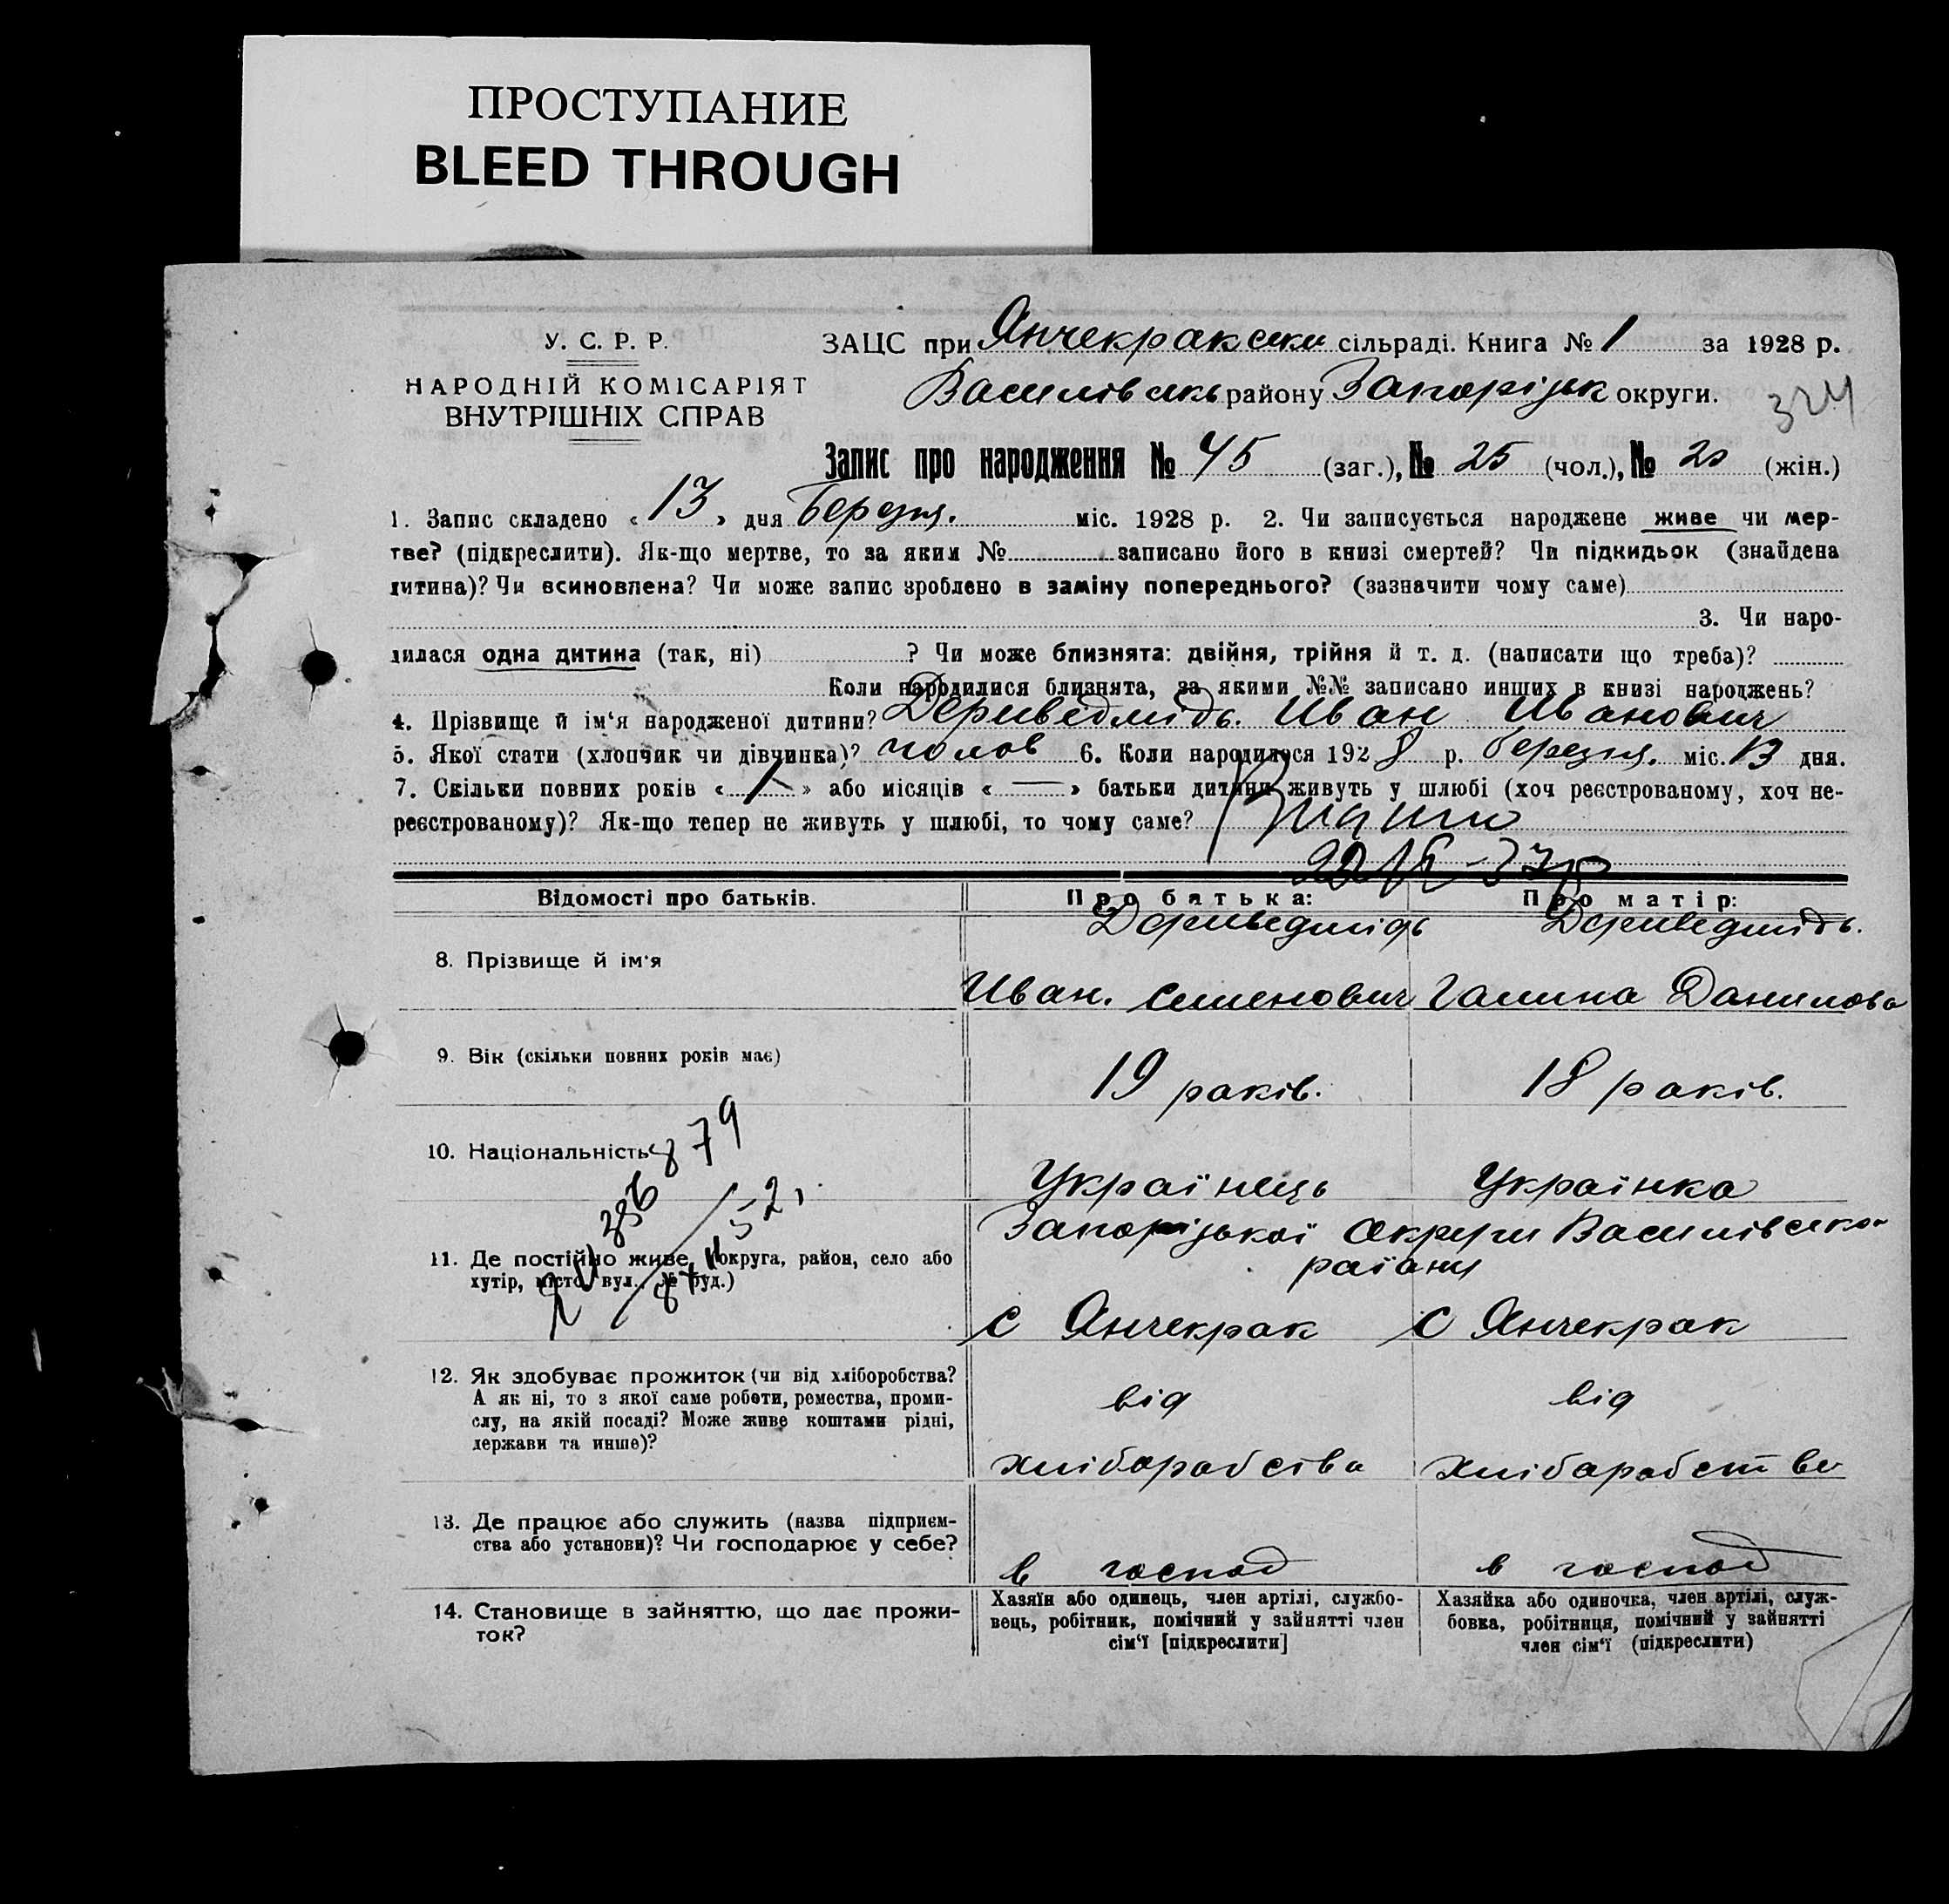 ПРОСТУПАНИЕ
BLEED THROUGH
У. С. Р. Р.
НАРОДНІЙ КОМІСАРІЯТ
ВНУТРІШНІХ СПРАВ
ЗАЦС при Янчекракски сільраді. Книга № 1 за 1928 р.
Василівськ району Запоріжськ округи.
324
Запис про народження № 45 (заг.), № 25 (чол.), № 20 (жін.)
1. Запис складено « 13 » дня Березня. міс. 1928 р. 2. Чи записується народжене живе чи мер-
тве? (підкреслити). Як-що мертве, то за яким № записано його в книзі смертей? Чи підкидьок (знайдена
дитина)? Чи всиновлена? Чи може запис зроблено в заміну попереднього? (зазначити чому саме)
3. Чи наро-
дилася одна дитина (так, ні) ? Чи може близнята: двійня, трійня й т. д. (написати що треба)?
Коли народилися близнята, за якими №№ записано инших в книзі народжень?
4. Прізвище й ім‘я народженої дитини? Дериведмідь. Иван Иванович
5. Якої стати (хлопчик чи дівчинка)? чолов 6. Коли народилося 1928 р. березня. міс. 13 дня.
7. Скільки повних років « 1 » або місяців « — » батьки дитини живуть у шлюбі (хоч реєстрованому, хоч не-
реєстрованому)? Як-що тепер не живуть у шлюбі, то чому саме?
Відомості про батьків. Про батька: Про матір:
Дериведмідь Дериведмідь.
8. Прізвище й ім‘я
Иван. Семенович Галина Данилова
9. Вік (скільки повних років має)
19 раків. 18 раків.
879
10. Національність
Українець Українка
386
52
Запоріжської Округи Василівсько
11. Де постійно живе (округа, район, село або
раіани
хутір, місто, вул., № буд.)
с Янчекрак с Янчекрак
12. Як здобуває прожиток (чи від хліборобства?
А як ні, то з якої саме роботи, ремества, проми-
від від
слу, на якій посаді? Може живе коштами рідні,
держави та инше)?
хліборабства хлібарабства
13. Де працює або служить (назва підприєм-
ства або установи)? Чи господарює у себе?
в господ в господ
14. Становище в зайняттю, що дає прожи-
ток?
Хазяїн або одинець, член артілі, службо-
вець, робітник, помічний у зайнятті член
сім‘ї [підкреслити]
Хазяйка або одиночка, член артілі, служ-
бовка, робітниця, помічний у зайнятті
член сім‘ї (підкреслити)